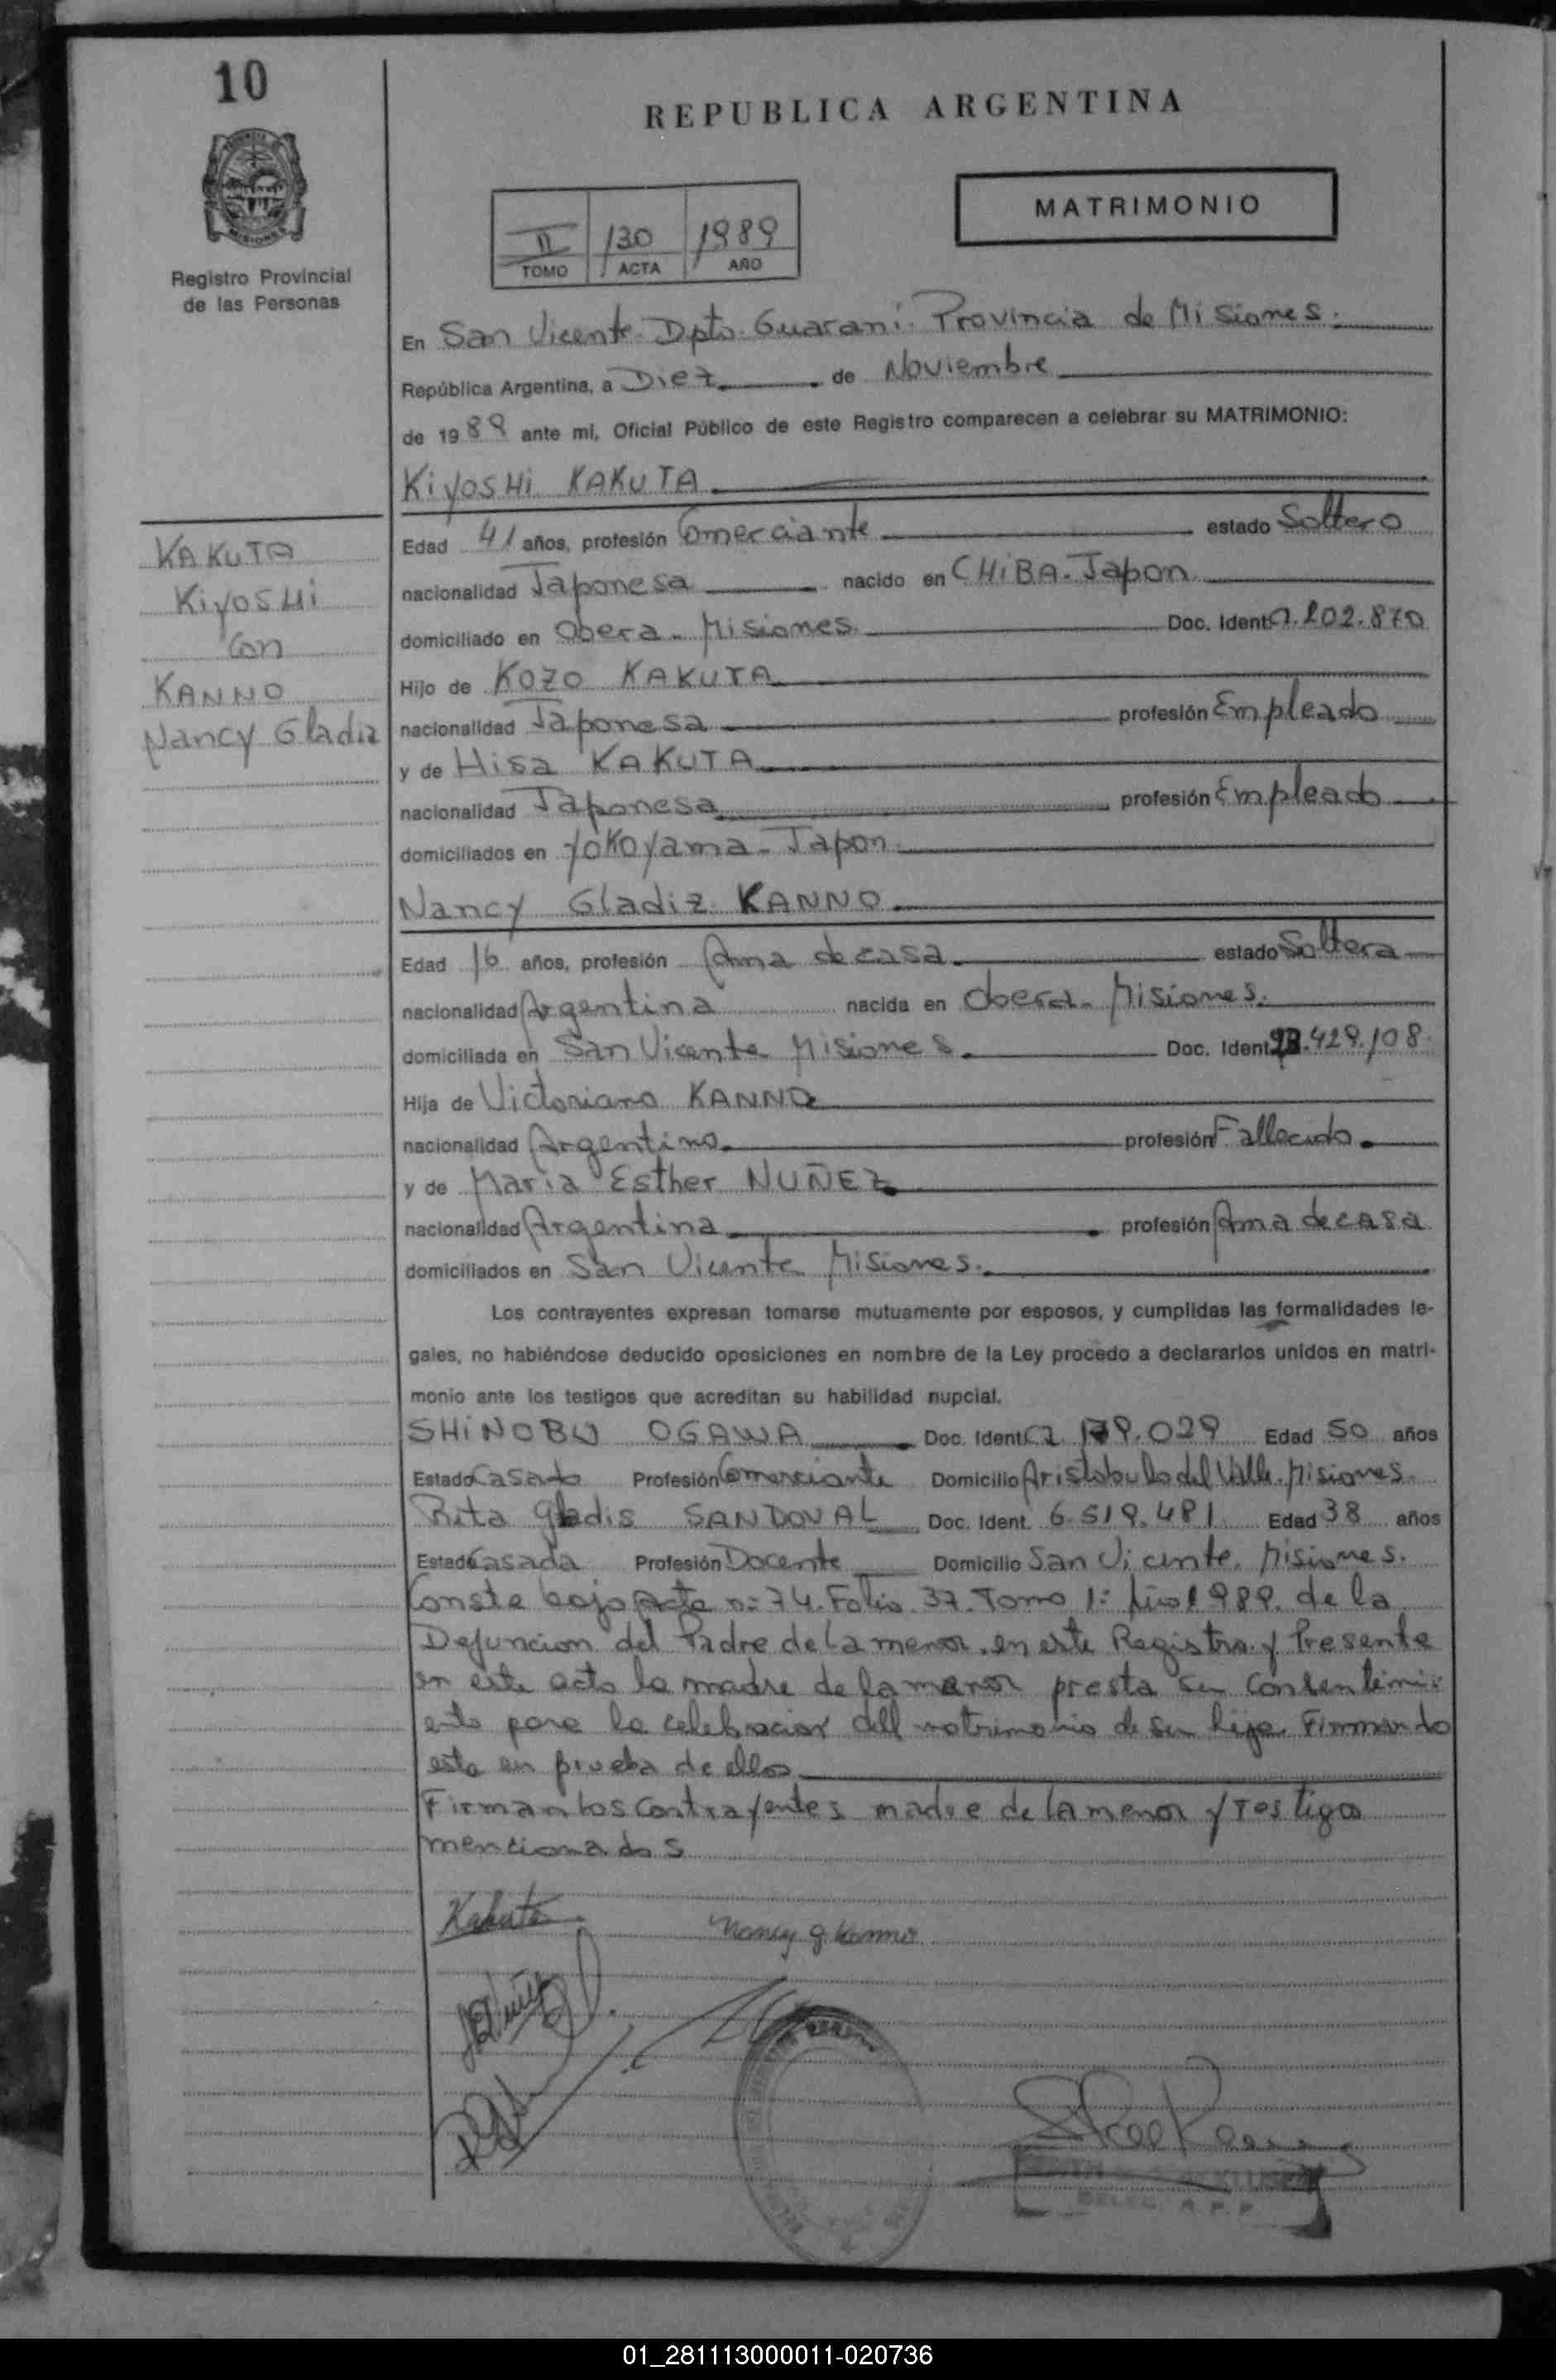 10
REPUBLICA ARGENTINA
MATRIMONIO
II 130 1989
TOMO ACTA AÑO
Registro Provincial
de las Personas
En San Vicente Dpto. Guarani. Provincia de Misiones.
República Argentina, a Diez de Noviembre
de 1989 ante mi, Oficial Público de este Registro comparecen a celebrar su MATRIMONIO:
KiyosHi KAKUTA
KAKUTA
KiyosHi
Con
KANNO
Nancy Gladiz
Edad 41 años, profesión Comerciante estado Soltero
nacionalidad Japonesa nacido en CHiBA-Japon
domiciliado en Obera - Misiones. Doc. Ident
Hijo de KOZO KAKUTA
nacionalidad Japonesa profesión Empleado
y de Hisa KAKUTA
nacionalidad Japonesa profesión Empleado
domiciliados en yoKoyama - Japon
Nancy Gladiz KANNO
Edad 16 años, profesión Ama de casa estado Soltera
nacionalidad Argentina nacida en Obera - Misiones.
domiciliada en San Vicente Misiones. Doc. Ident 93.429.108
Hija de Victoriano KANNO
nacionalidad Argentino profesión Fallecido.
y de Maria Esther NUÑEZ
nacionalidad Argentina profesión Ama de casa
domiciliados en San Vicente Misiones.
Los contrayentes expresan tomarse mutuamente por esposos, y cumplidas las formalidades le-
gales, no habiéndose deducido oposiciones en nombre de la Ley procedo a declararlos unidos en matri-
monio ante los testigos que acreditan su habilidad nupcial.
SHiNOBU OGAWA Doc. Ident Edad 50 años
Estado Casado Profesión Comerciante Domicilio Aristobulo del Valle. Misiones.
Rita Gladis SANDOVAL Doc. Ident. 6.519.481 Edad 38 años
Estado Casada Profesión Docente Domicilio San Vicente. Misiones.
Conste bajo Acta n: 74. Folio 37. Tomo 1: Año 1989. de la
Defuncion del Padre de la menor. en este Registro y Presente
en este acto la madre de la menor presta su Consentimi-
ento para la celebracion dell matrimonio de su hija. Firmando
esta en prueba de ellos
Firman los Contrayentes madre de la menor y Testigos
mencionados
Kakuta
Nancy G. Kanno
DELEG. R. P. P.
01_281113000011-020736